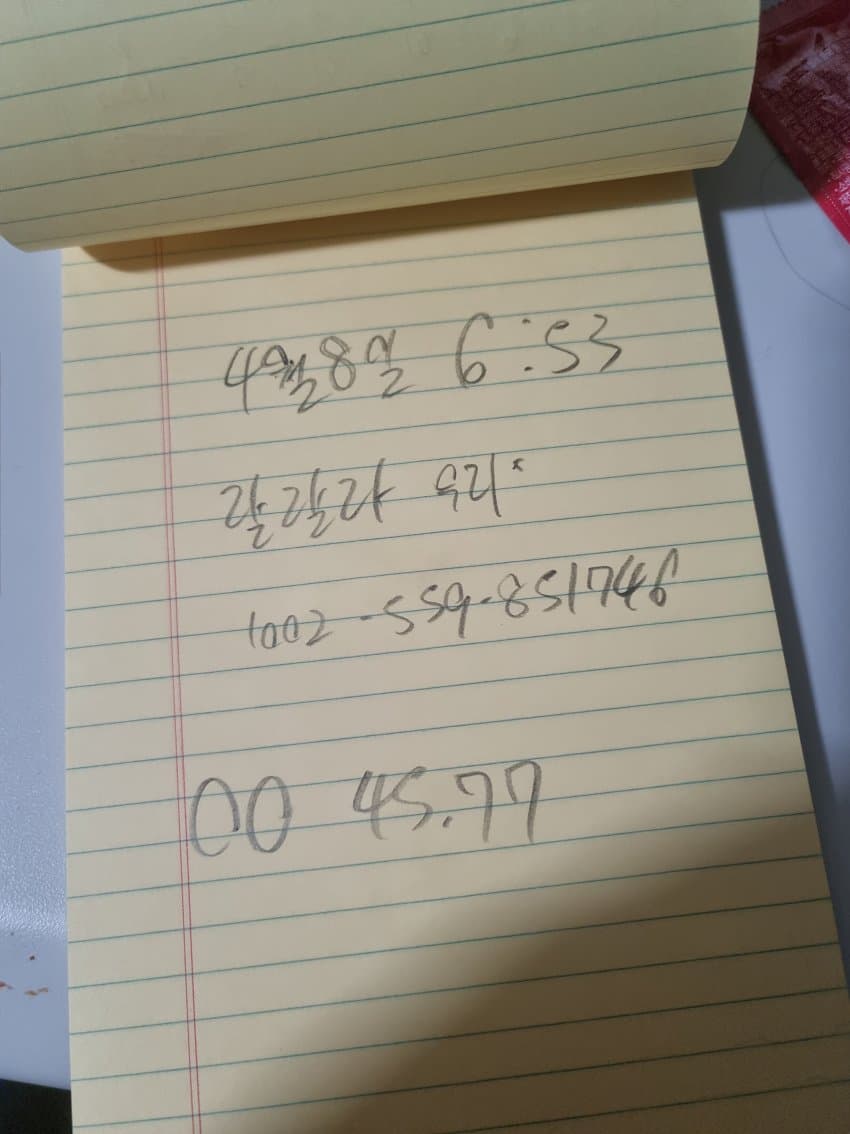 4월8일 6:53
랄랄라 우리*
1002-559-851746
00 45.77